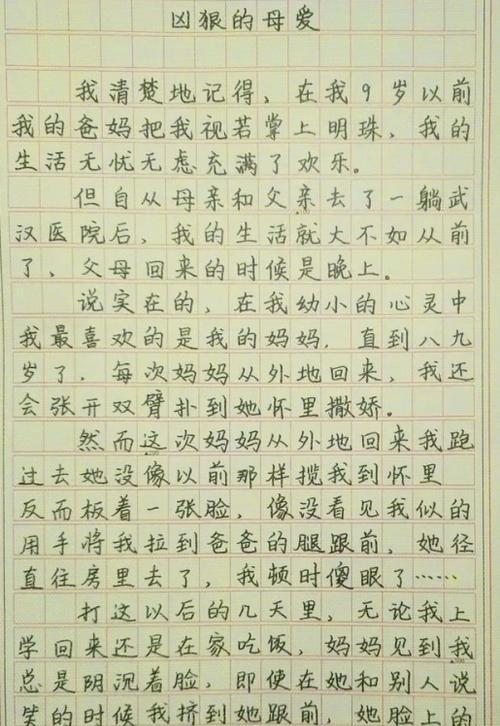 凶狠的母爱
我清楚地记得，在我9岁以前
我的爸妈把我视若掌上明珠，我的
生活无忧无虑充满了欢乐。
但自从母亲和父亲去了一躺武
汉医院后，我的生活就大不如从前
了，父母回来的时候是晚上。
说实在的，在我幼小的心灵中
我最喜欢的是我的妈妈，直到八九
岁了，每次妈妈从外地回来，我还
会张开双臂扑到她怀里撒娇。
然而这次妈妈从外地回来我跑
过去她没像以前那样揽我到怀里
反而板着一张脸，像没看见我似的
用手将我拉到爸爸的腿跟前，她径
直往房里去了，我顿时傻眼了……
打这以后的几天里，无论我上
学回来还是在家吃饭，妈妈见到我
总是阴沉着脸，即使在她和别人说
笑的时候我挤到她跟前，她脸上的